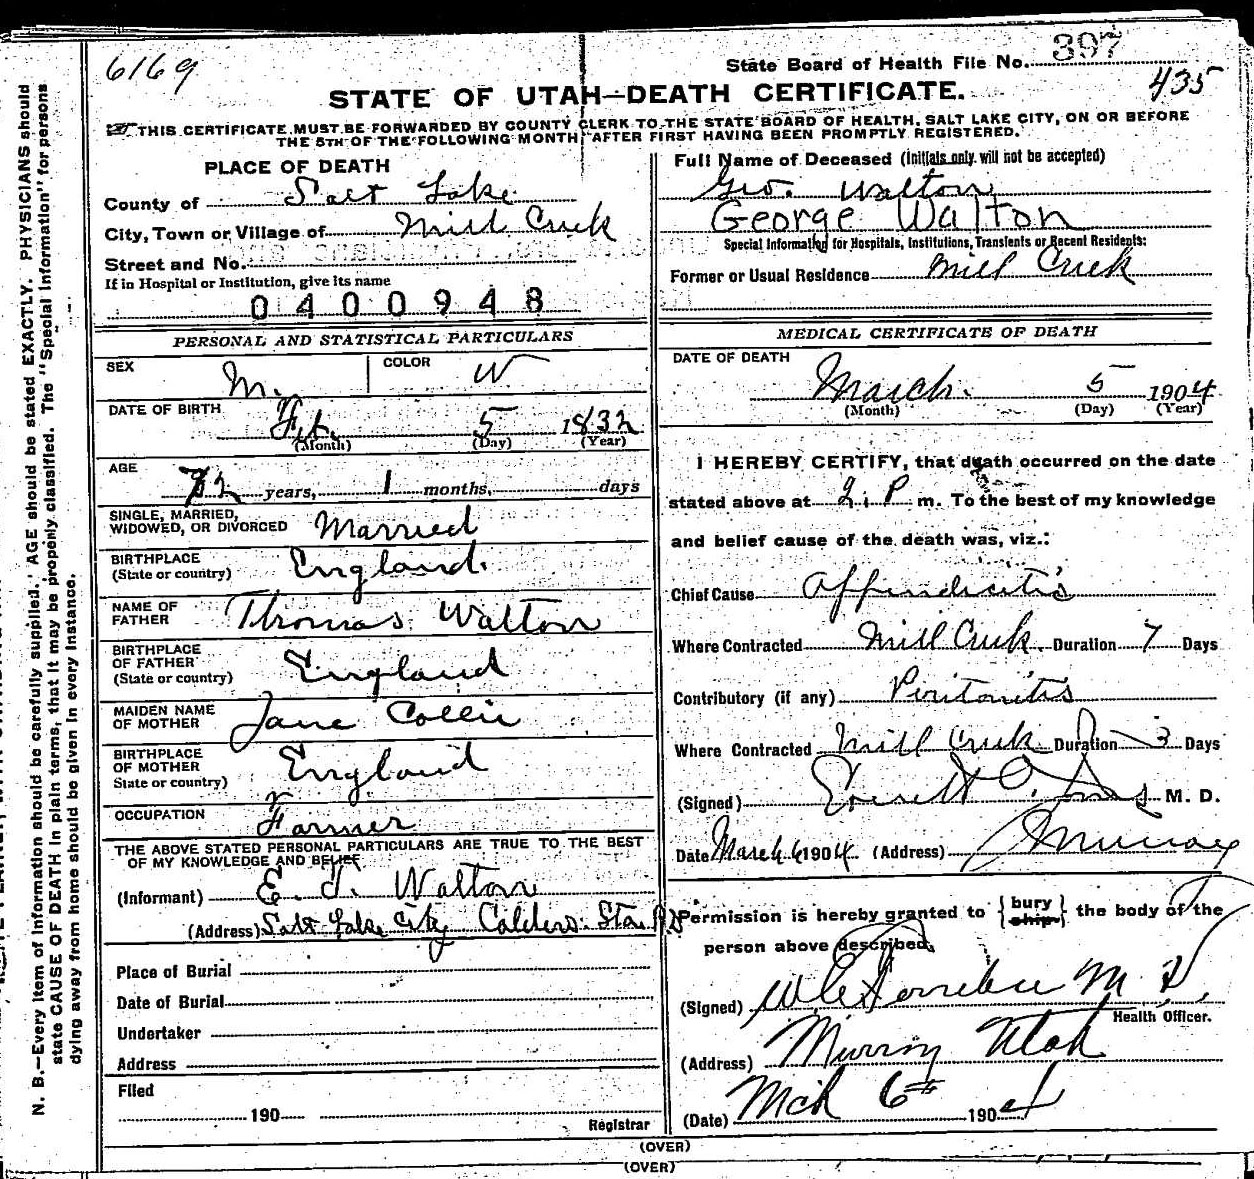 6169
State Board of Health File No. 397
435
STATE OF UTAH—DEATH CERTIFICATE.
THIS CERTIFICATE MUST BE FORWARDED BY COUNTY CLERK TO THE STATE BOARD OF HEALTH, SALT LAKE CITY, ON OR BEFORE
THE 5TH OF THE FOLLOWING MONTH AFTER FIRST HAVING BEEN PROMPTLY REGISTERED.
PLACE OF DEATH
County of Salt Lake
City, Town or Village of Mill Creek
Street and No.
If in Hospital or Institution, give its name
0400948
Full Name of Deceased (Initials only will not be accepted)
Geo. Walton
George Walton
Special Information for Hospitals, Institutions, Transients or Recent Residents:
Former or Usual Residence Mill Creek
PERSONAL AND STATISTICAL PARTICULARS
SEX M. COLOR W
DATE OF BIRTH
Feb. 5 1832
(Month) (Day) (Year)
AGE
72 years, 1 months, days
SINGLE, MARRIED,
WIDOWED, OR DIVORCED Married
BIRTHPLACE
(State or country) England.
NAME OF
FATHER Thomas Walton
BIRTHPLACE
OF FATHER
(State or country) England
MAIDEN NAME
OF MOTHER Jane Collie
BIRTHPLACE
OF MOTHER
State or country) England
OCCUPATION Farmer
THE ABOVE STATED PERSONAL PARTICULARS ARE TRUE TO THE BEST
OF MY KNOWLEDGE AND BELIEF
(Informant) E. T. Walton
(Address) Salt Lake City Calders Sta.
Place of Burial
Date of Burial
Undertaker
Address
Filed
190
Registrar
MEDICAL CERTIFICATE OF DEATH
DATE OF DEATH
March. 5 1904
(Month) (Day) (Year)
I HEREBY CERTIFY, that death occurred on the date
stated above at 2. P m. To the best of my knowledge
and belief cause of the death was, viz.:
Chief Cause Appendicitis
Where Contracted Mill Creek. Duration 7 Days
Contributory (if any) Peritonitis
Where Contracted Mill Creek Duration 3 Days
(Signed) Everett O. Jones M. D.
Date March 6 1904 (Address) Murray
Permission is hereby granted to { bury ship } the body of the
person above described.
(Signed) M D,
Health Officer.
(Address) Murray Utah
(Date) Mch 6th 1904
(OVER)
(OVER)
N. B.—Every item of information should be carefully supplied. AGE should be stated EXACTLY. PHYSICIANS should
state CAUSE OF DEATH in plain terms, that it may be properly classified. The "Special Information" for persons
dying away from home should be given in every instance.